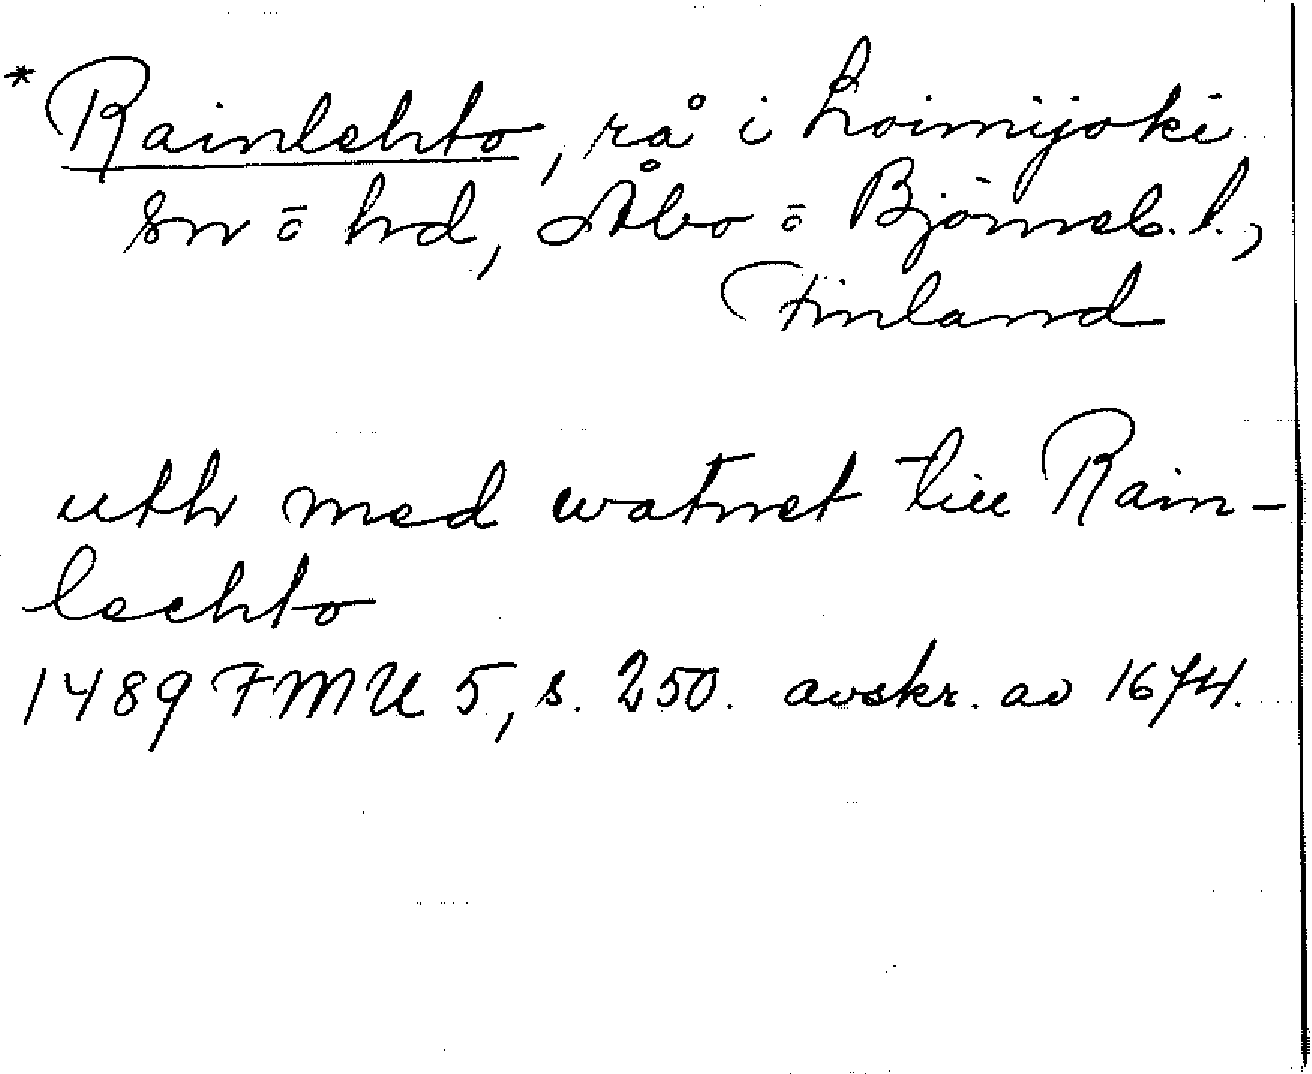 * Rainlehto, rå i Loimijoki
sn ō hd, Åbo ō Björneb. l.,
Finland
uthr med watnet till Rain-
lechto
1489 FMU 5, s. 250. avskr. av 1674.